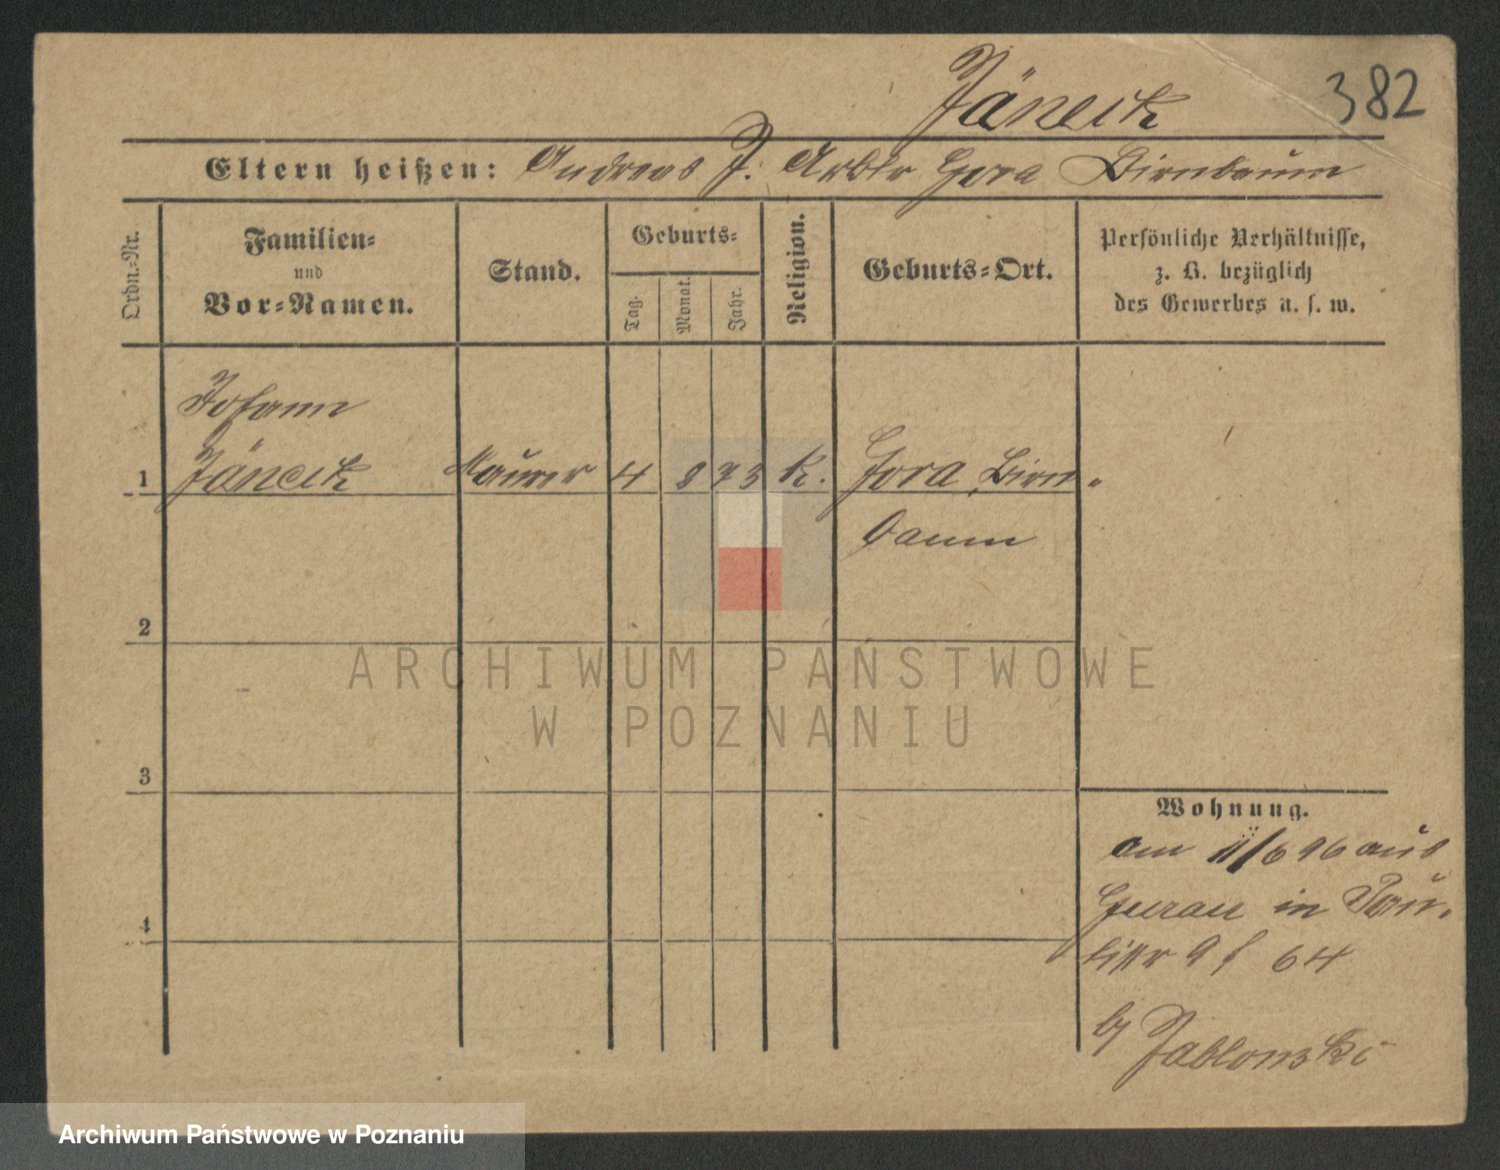 382
Jäneck
Eltern heißen: Andreas J. Arbtr Gora Birnbaum
Ordn.-Nr.
Familien-
und
Vor-Namen.
Stand.
Geburts-
Tag.
Monat.
Jahr.
Religion.
Geburts-Ort.
Persönliche Verhältnisse,
z. B. bezüglich
des Gewerbes u. s. w.
Johann
1 Jäneck Maurer 4 8 73 K. Gora, Birn-
baum
2
3
4
Wohnung.
am 11/6 96 aus
Gurau in
64
b/ Jablonski
ARCHIWUM PAŃSTWOWE
W POZNANIU
Archiwum Państwowe w Poznaniu